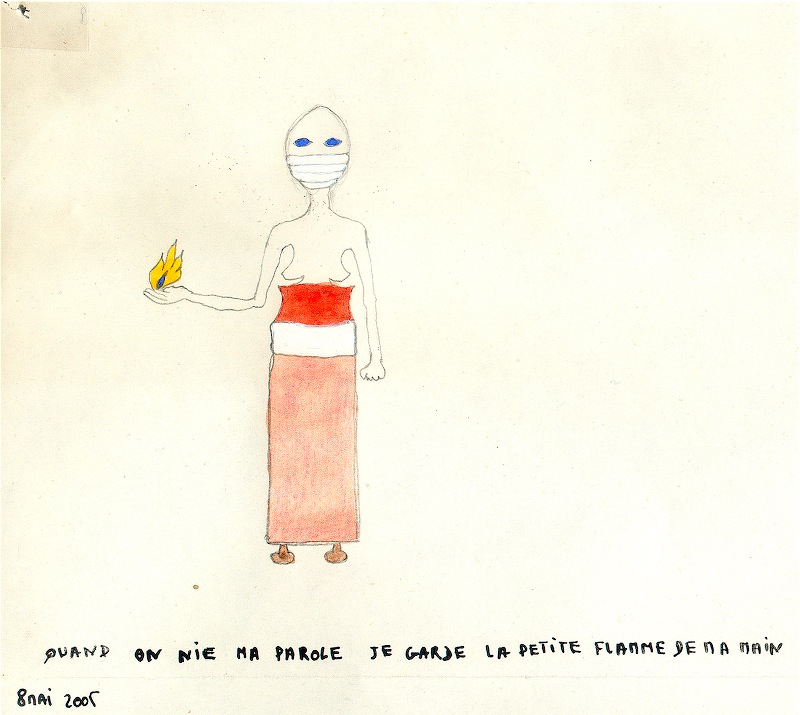 QUAND ON NIE MA PAROLE JE GARDE LA PETITE FLAMME DE MA MAIN
8 MAI 2005